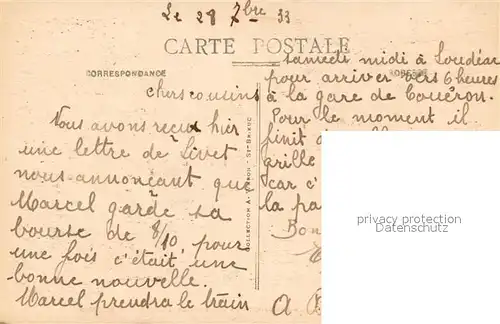 Le 28 7bre 33
CARTE POSTALE
CORRESPONDANCE
ADRESSE
chers cousins
Nous avons reçu hier
une lettre de Livet
nous annonçant que
Marcel garde sa
bourse de 8/10 pour
une fois c'était une
bonne nouvelle.
Marcel prendra le train
COLLECTION A. WARON - ST BRIEUC
samedi midi à Loudéac
pour arriver vers 6 heures
à la gare de Couëron.
Pour le moment il
finit
grille
car c'
la
Bon
a
privacy protection
oldthing.de